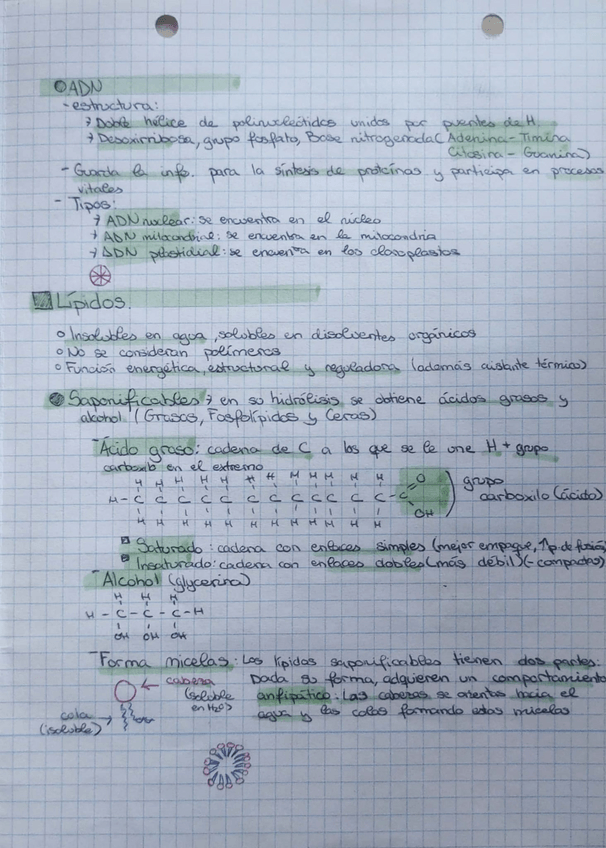 ADN
- estructura:
→ Doble hélice de polinucleótidos unidos por puentes de H.
→ Desoxirribosa, grupo fosfato, Base nitrogenada (Adenina - Timina
Citosina - Guanina)
- Guarda la info. para la síntesis de proteínas y participa en procesos
vitales
- Tipos:
→ ADN nuclear: se encuentra en el núcleo
→ ADN mitocondrial: se encuentra en la mitocondria
→ ADN plastidial: se encuentra en los cloroplastos
Lípidos.
o Insolubles en agua, solubles en disolventes orgánicos
o No se consideran polímeros
o Función energética, estructural y reguladora (además aislante térmico)
Saponificables → en su hidrólisis se obtiene ácidos grasos y
alcohol. (Grasas, Fosfolípidos y Ceras)
- Ácido graso: cadena de C a los que se le une H + grupo
carboxilo en el extremo
H H H H H H H H H H H
H - C C C C C C C C C C C - C O
H H H H H H H H H H H OH
grupo
carboxilo (ácido)
Saturado: cadena con enlaces simples (mejor empaque, ↑p. de fusión)
Insaturado: cadena con enlaces dobles (más débil) (- compactas)
- Alcohol (glycerina)
H H H
H - C - C - C - H
OH OH OH
- Forma micelas: Los lípidos saponificables tienen dos partes.
Dada su forma, adquieren un comportamiento
anfipático: Las cabezas se orientan hacia el
agua y las colas formando estas micelas
cabeza
(soluble
en H₂O)
cola
(isoluble)